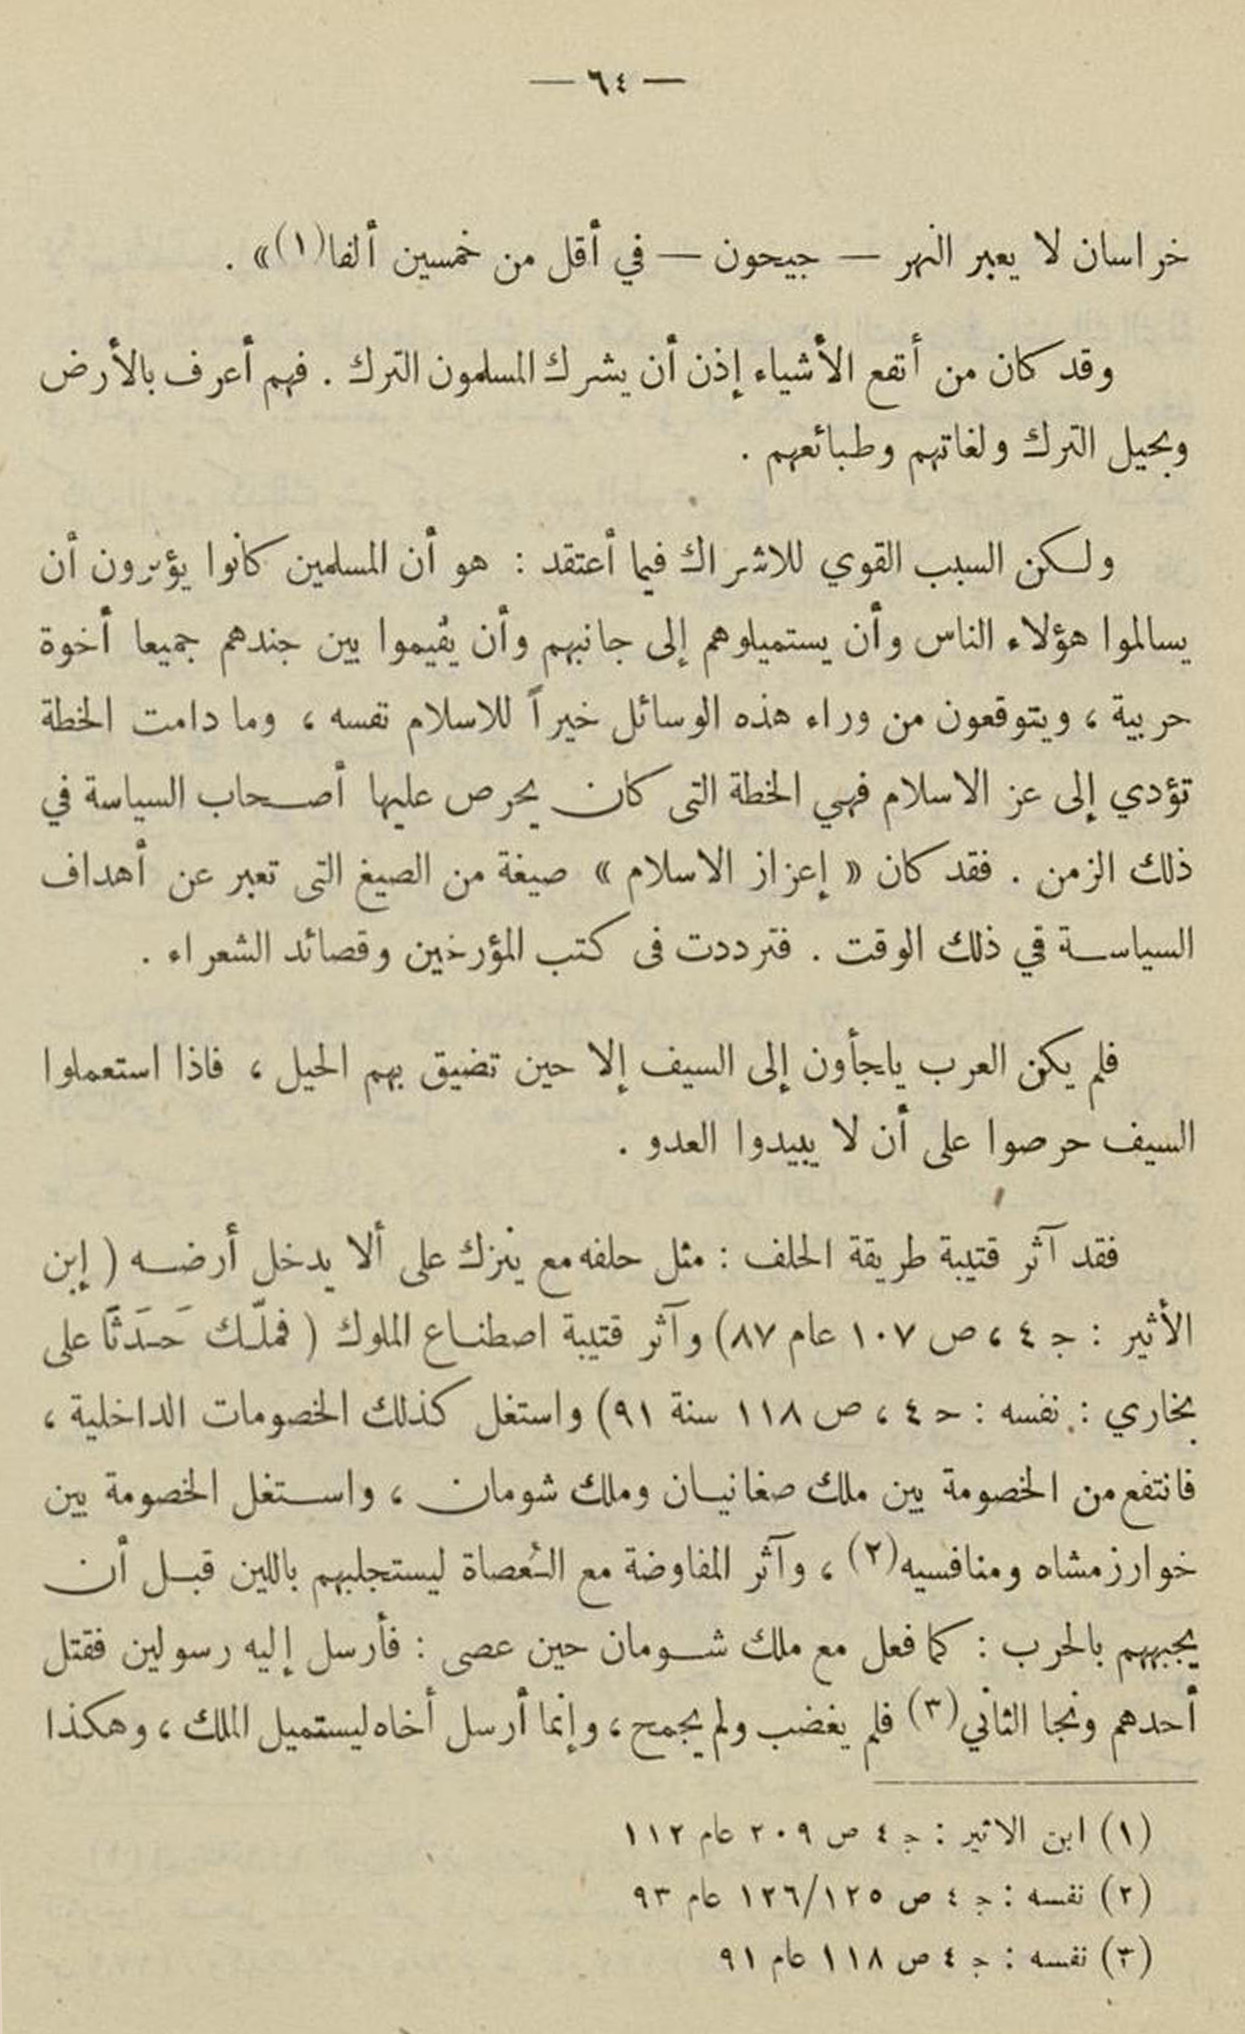 — ٦٤ —
خراسان لا يعبر النهر — جيحون — في أقل من خمسين ألفا(١)» .
وقد كان من أنفع الأشياء إذن أن يشرك المسلمون الترك . فهم أعرف بالأرض
وبحيل الترك ولغاتهم وطبائعهم .
ولكن السبب القوي للاشراك فيما أعتقد : هو أن المسلمين كانوا يؤثرون أن
يسالموا هؤلاء الناس وأن يستميلوهم إلى جانبهم وأن يقيموا بين جندهم جميعا أخوة
حربية ، ويتوقعون من وراء هذه الوسائل خيراً للاسلام نفسه ، وما دامت الخطة
تؤدي إلى عز الاسلام فهي الخطة التى كان يحرص عليها أصحاب السياسة في
ذلك الزمن . فقد كان « إعزاز الاسلام » صيغة من الصيغ التى تعبر عن أهداف
السياسة في ذلك الوقت . فترددت فى كتب المؤرخين وقصائد الشعراء .
فلم يكن العرب يلجأون إلى السيف إلا حين تضيق بهم الحيل ، فاذا استعملوا
السيف حرصوا على أن لا يبيدوا العدو .
فقد آثر قتيبة طريقة الحلف : مثل حلفه مع نيزك على ألا يدخل أرضه ( إبن
الأثير : ج ٤ ، ص ١٠٧ عام ٨٧) وآثر قتيبة اصطناع الملوك ( فملّك حَدَثاً على
بخاري : نفسه : ح ٤ ، ص ١١٨ سنة ٩١) واستغل كذلك الخصومات الداخلية ،
فانتفع من الخصومة بين ملك صغانيان وملك شومان ، واستغل الخصومة بين
خوارزمشاه ومنافسيه(٢) ، وآثر المفاوضة مع العُصاة ليستجلبهم باللين قبل أن
يجبههم بالحرب : كما فعل مع ملك شومان حين عصى : فأرسل إليه رسولين فقتل
أحدهم ونجا الثاني(٣) فلم يغضب ولم يجمح ، وإنما أرسل أخاه ليستميل الملك ، وهكذا
(١) ابن الاثير : ج ٤ ص ٢٠٩ عام ١١٢
(٢) نفسه : ج ٤ ص ١٢٦/١٢٥ عام ٩٣
(٣) نفسه : ج ٤ ص ١١٨ عام ٩١